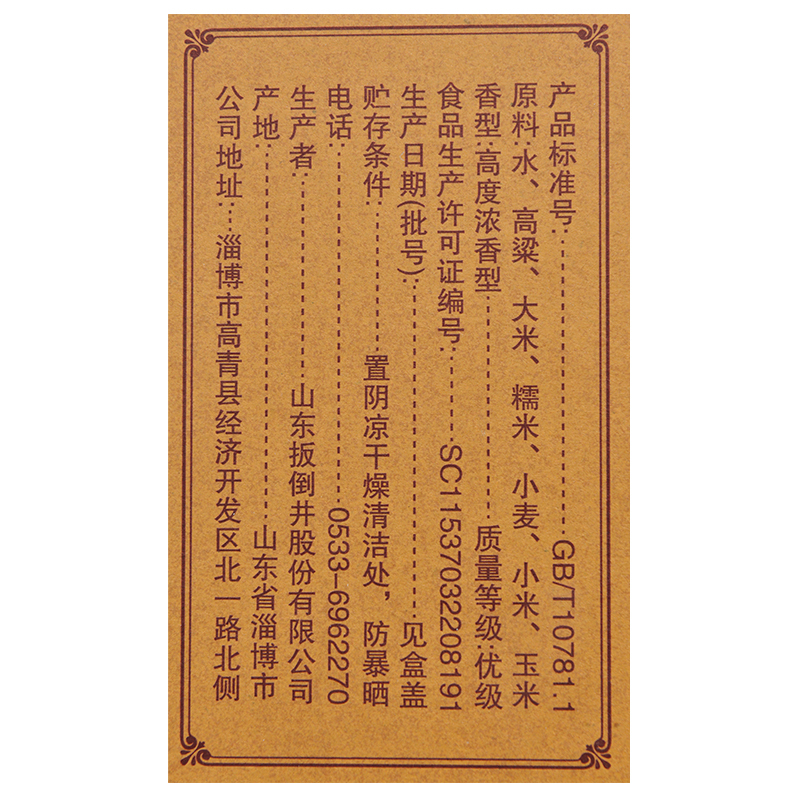 产品标准号:GB/T10781.1
原料:水、高粱、大米、糯米、小麦、小米、玉米
香型:高度浓香型 质量等级:优级
食品生产许可证编号:SC11537032208191
生产日期(批号):见盒盖
贮存条件:置阴凉干燥清洁处,防暴晒
电话:0533-6962270
生产者:山东扳倒井股份有限公司
产地:山东省淄博市
公司地址:淄博市高青县经济开发区北一路北侧